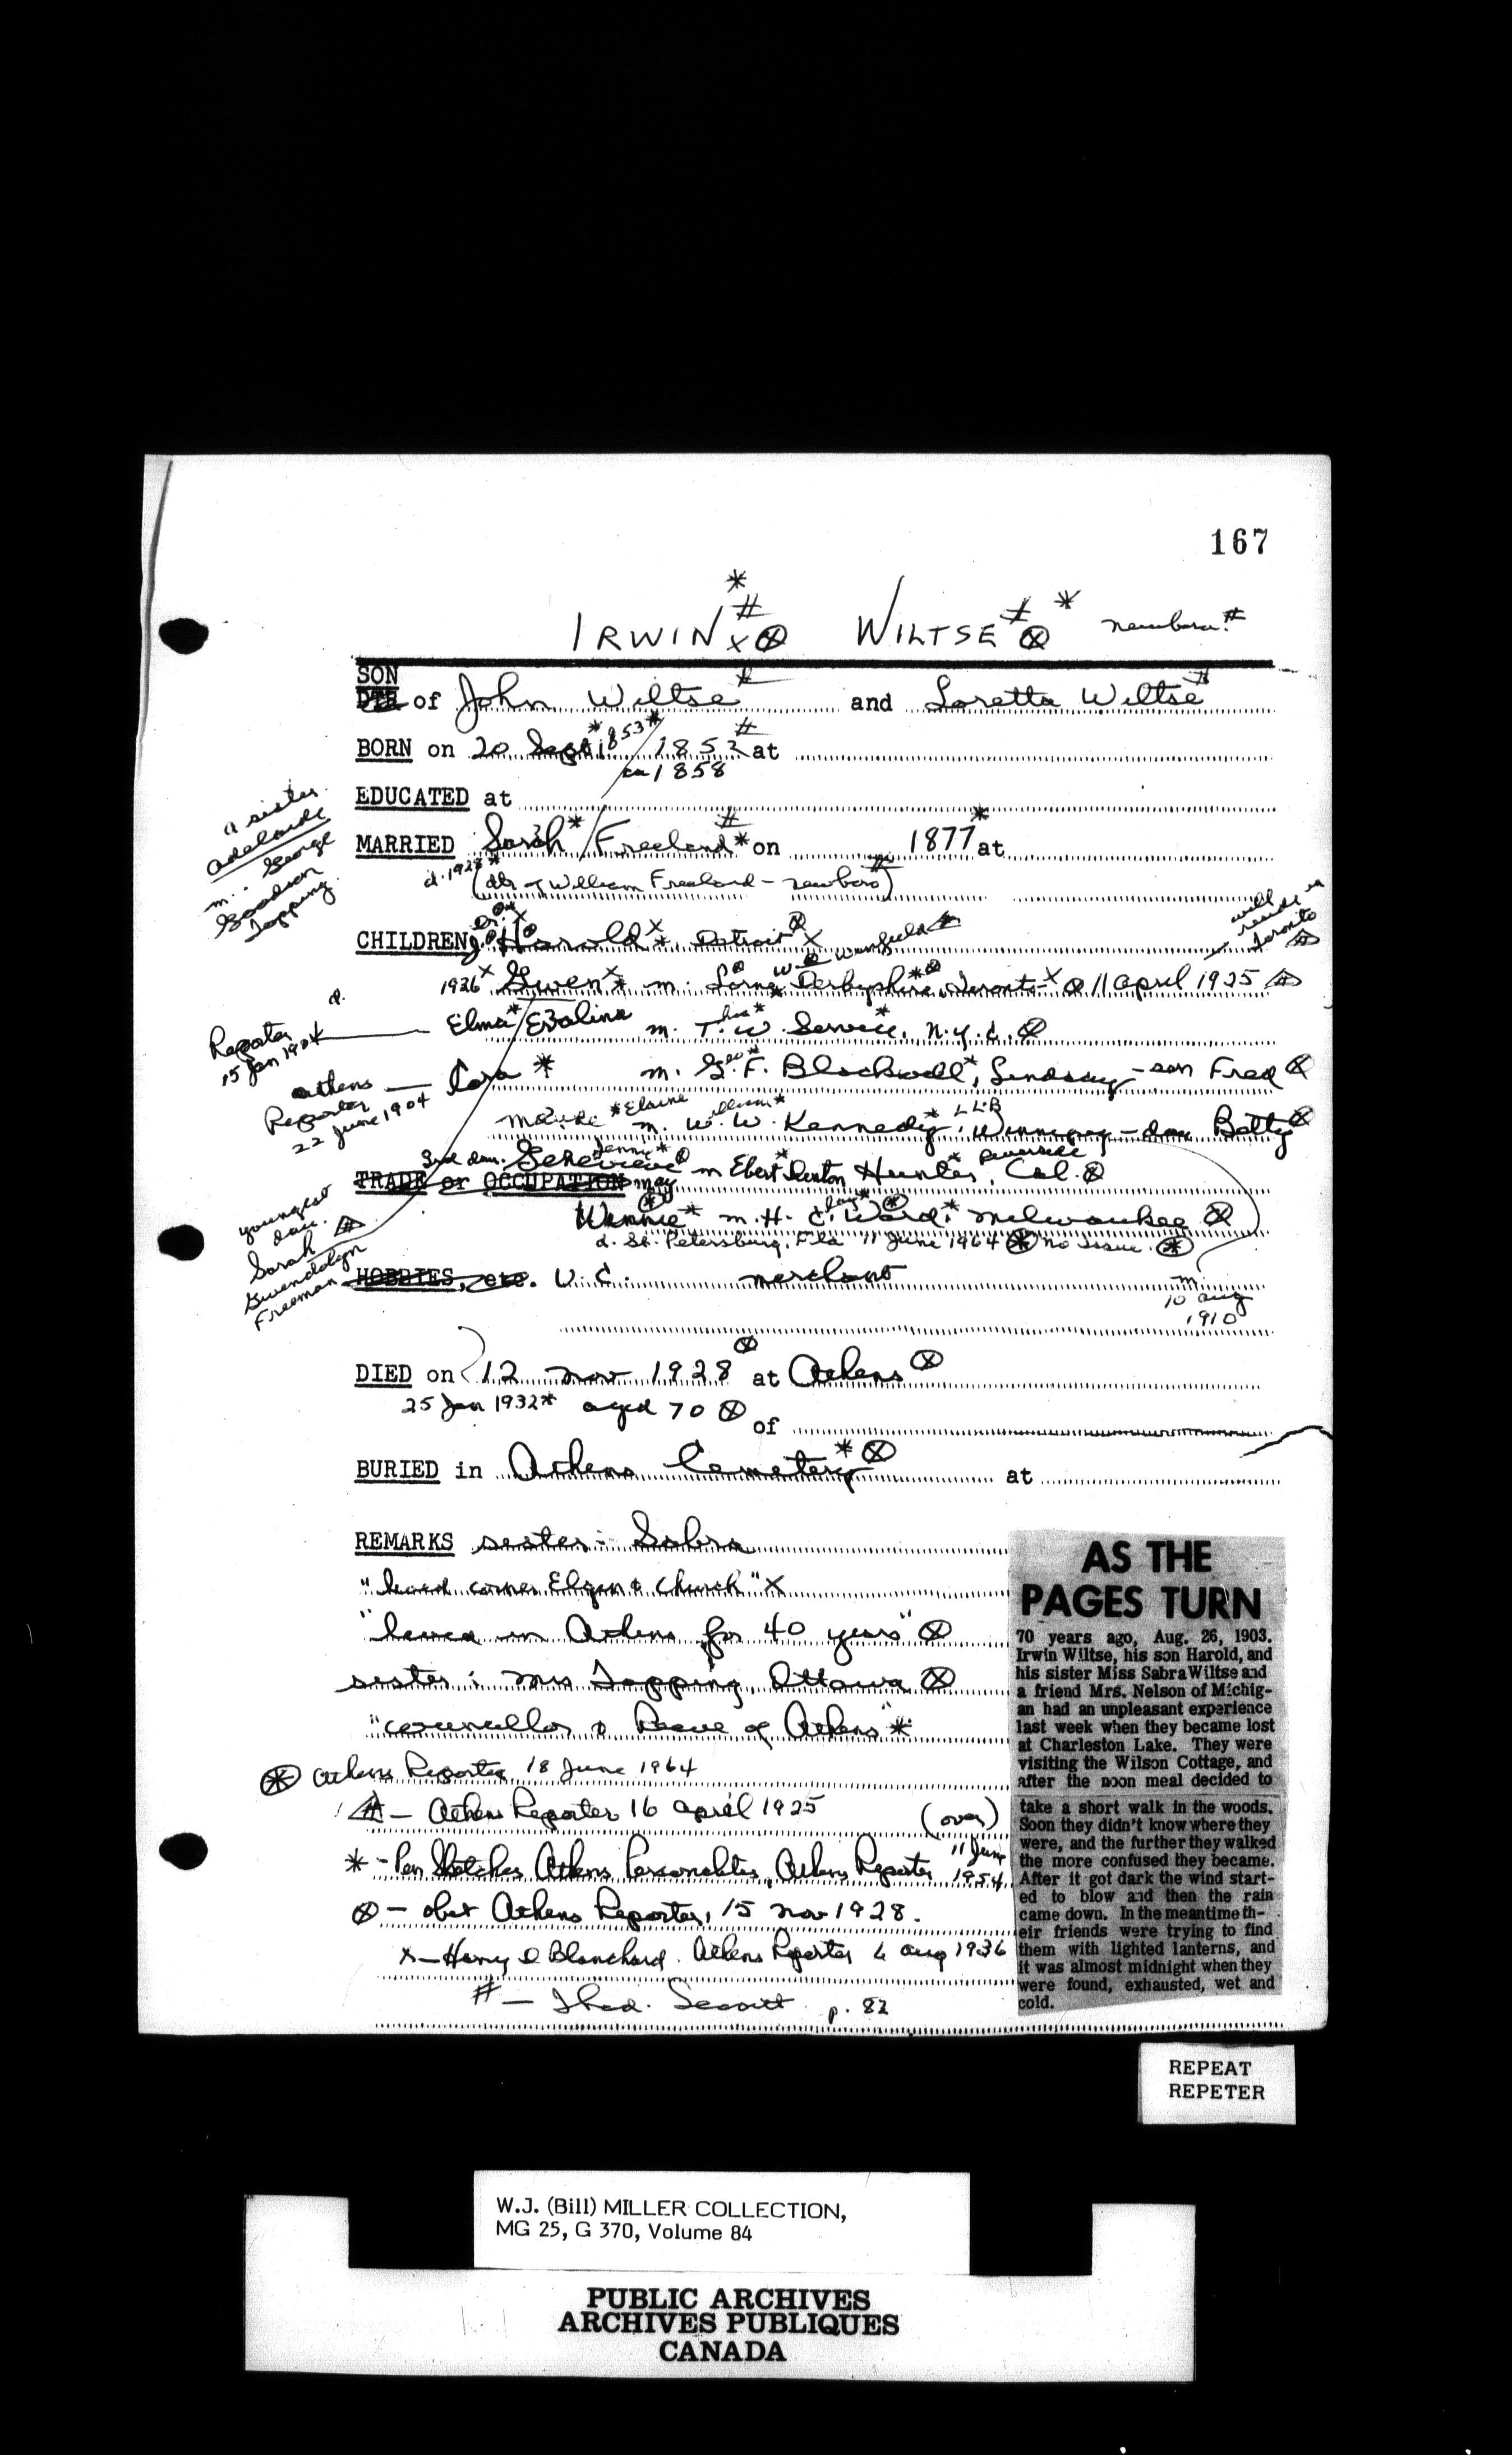 167
IRWIN *#x⊗ WILTSE #⊗ * Newboro #
SON
DTR of John Wiltse # and Loretta Wiltse #
BORN on 20 Sept * 1853 * / 1852 # at
ca 1858
EDUCATED at
a sister
Adelaide
m. George
Goodson
Topping
MARRIED Sarah * / Freeland # * on 1877 * at
d. 1928 * (dtr of William Freeland - Newboro #)
CHILDREN Dr. Harold x *, Detroit ⊗ x
will reside in Toronto
1936 x Gwen x * m. Lorne W. Wingfield Derbyshire * ⊗, Toronto x ⊗ 11 April 1925
d.
Reporter
15 Jan 1904
Elma * / Evalina m. T. W. Service, N.Y.C. ⊗
Athens
Reporter
22 June 1904
Cora * m. Geo * F. Blackwell *, Lindsay - son Fred ⊗
Maude * Elaine m. William * W. Kennedy * LLB Winnipeg - dau Betty ⊗
3rd dau. Genevieve Jenny * ⊗ May m Ebert * Denton Hunter * Riverside, Cal. ⊗
TRADE or OCCUPATION
youngest
dau.
Sarah
Gwendolyn
Freeman
Winnie * m. H. C. Ward * Milwaukee ⊗
d. St. Petersburg, Fla 11 June 1964 no issue.
HOBBIES, etc. U. C. merchant
m.
10 Aug
1910
DIED on 12 Nov 1928 ⊗ at Athens ⊗
25 Jan 1932 * aged 70 ⊗ of
BURIED in Athens Cemetery * ⊗ at
REMARKS sister: Sabra
"lived corner Elgin & Church" x
"lived in Athens for 40 years" ⊗
sister: Mrs Topping, Ottawa ⊗
"councillor & Reeve of Athens" *
Athens Reporter 18 June 1964
# - Athens Reporter 16 April 1925 (over)
* - Pen Sketches Athens Personalities, Athens Reporter 11 June 1954
⊗ - obit Athens Reporter, 15 Nov 1928.
x - Harvey D Blanchard. Athens Reporter 6 Aug 1936
# - Thad. p. 82
AS THE
PAGES TURN
70 years ago, Aug. 26, 1903.
Irwin Wiltse, his son Harold, and
his sister Miss Sabra Wiltse and
a friend Mrs. Nelson of Michig-
an had an unpleasant experience
last week when they became lost
at Charleston Lake. They were
visiting the Wilson Cottage, and
after the noon meal decided to
take a short walk in the woods.
Soon they didn't know where they
were, and the further they walked
the more confused they became.
After it got dark the wind start-
ed to blow and then the rain
came down. In the meantime th-
eir friends were trying to find
them with lighted lanterns, and
it was almost midnight when they
were found, exhausted, wet and
cold.
REPEAT
REPETER
W.J. (Bill) MILLER COLLECTION,
MG 25, G 370, Volume 84
PUBLIC ARCHIVES
ARCHIVES PUBLIQUES
CANADA